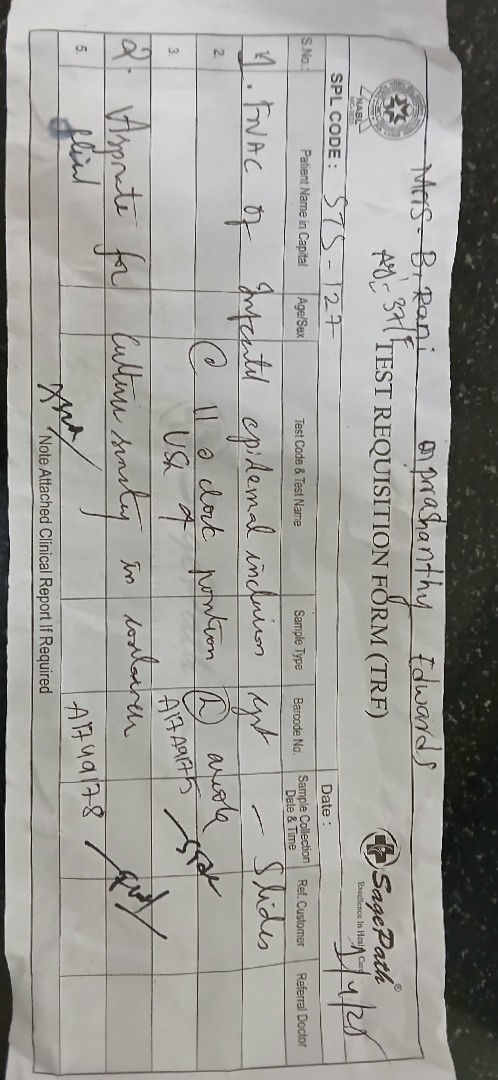 Mrs. B. Rani Dr prashanthy Edwards
Age- 37/F
NABL
TEST REQUISITION FORM (TRF)
SagePath®
Excellence In Health Care
SPL CODE : STS - 127
Date : 1/4/25
S.No.: Patient Name in Capital Age/Sex Test Code & Test Name Sample Type Barcode No. Sample Collection Date & Time Ref. Customer Referral Doctor
1. FNAC of Infected epidermal inclusion cyst - Slides
2. @ 11 o clock position (L) areola
3. USG of A1749175
2. Aspirate for Culture sensitivity in container
5. fluid A1749178
Note Attached Clinical Report If Required